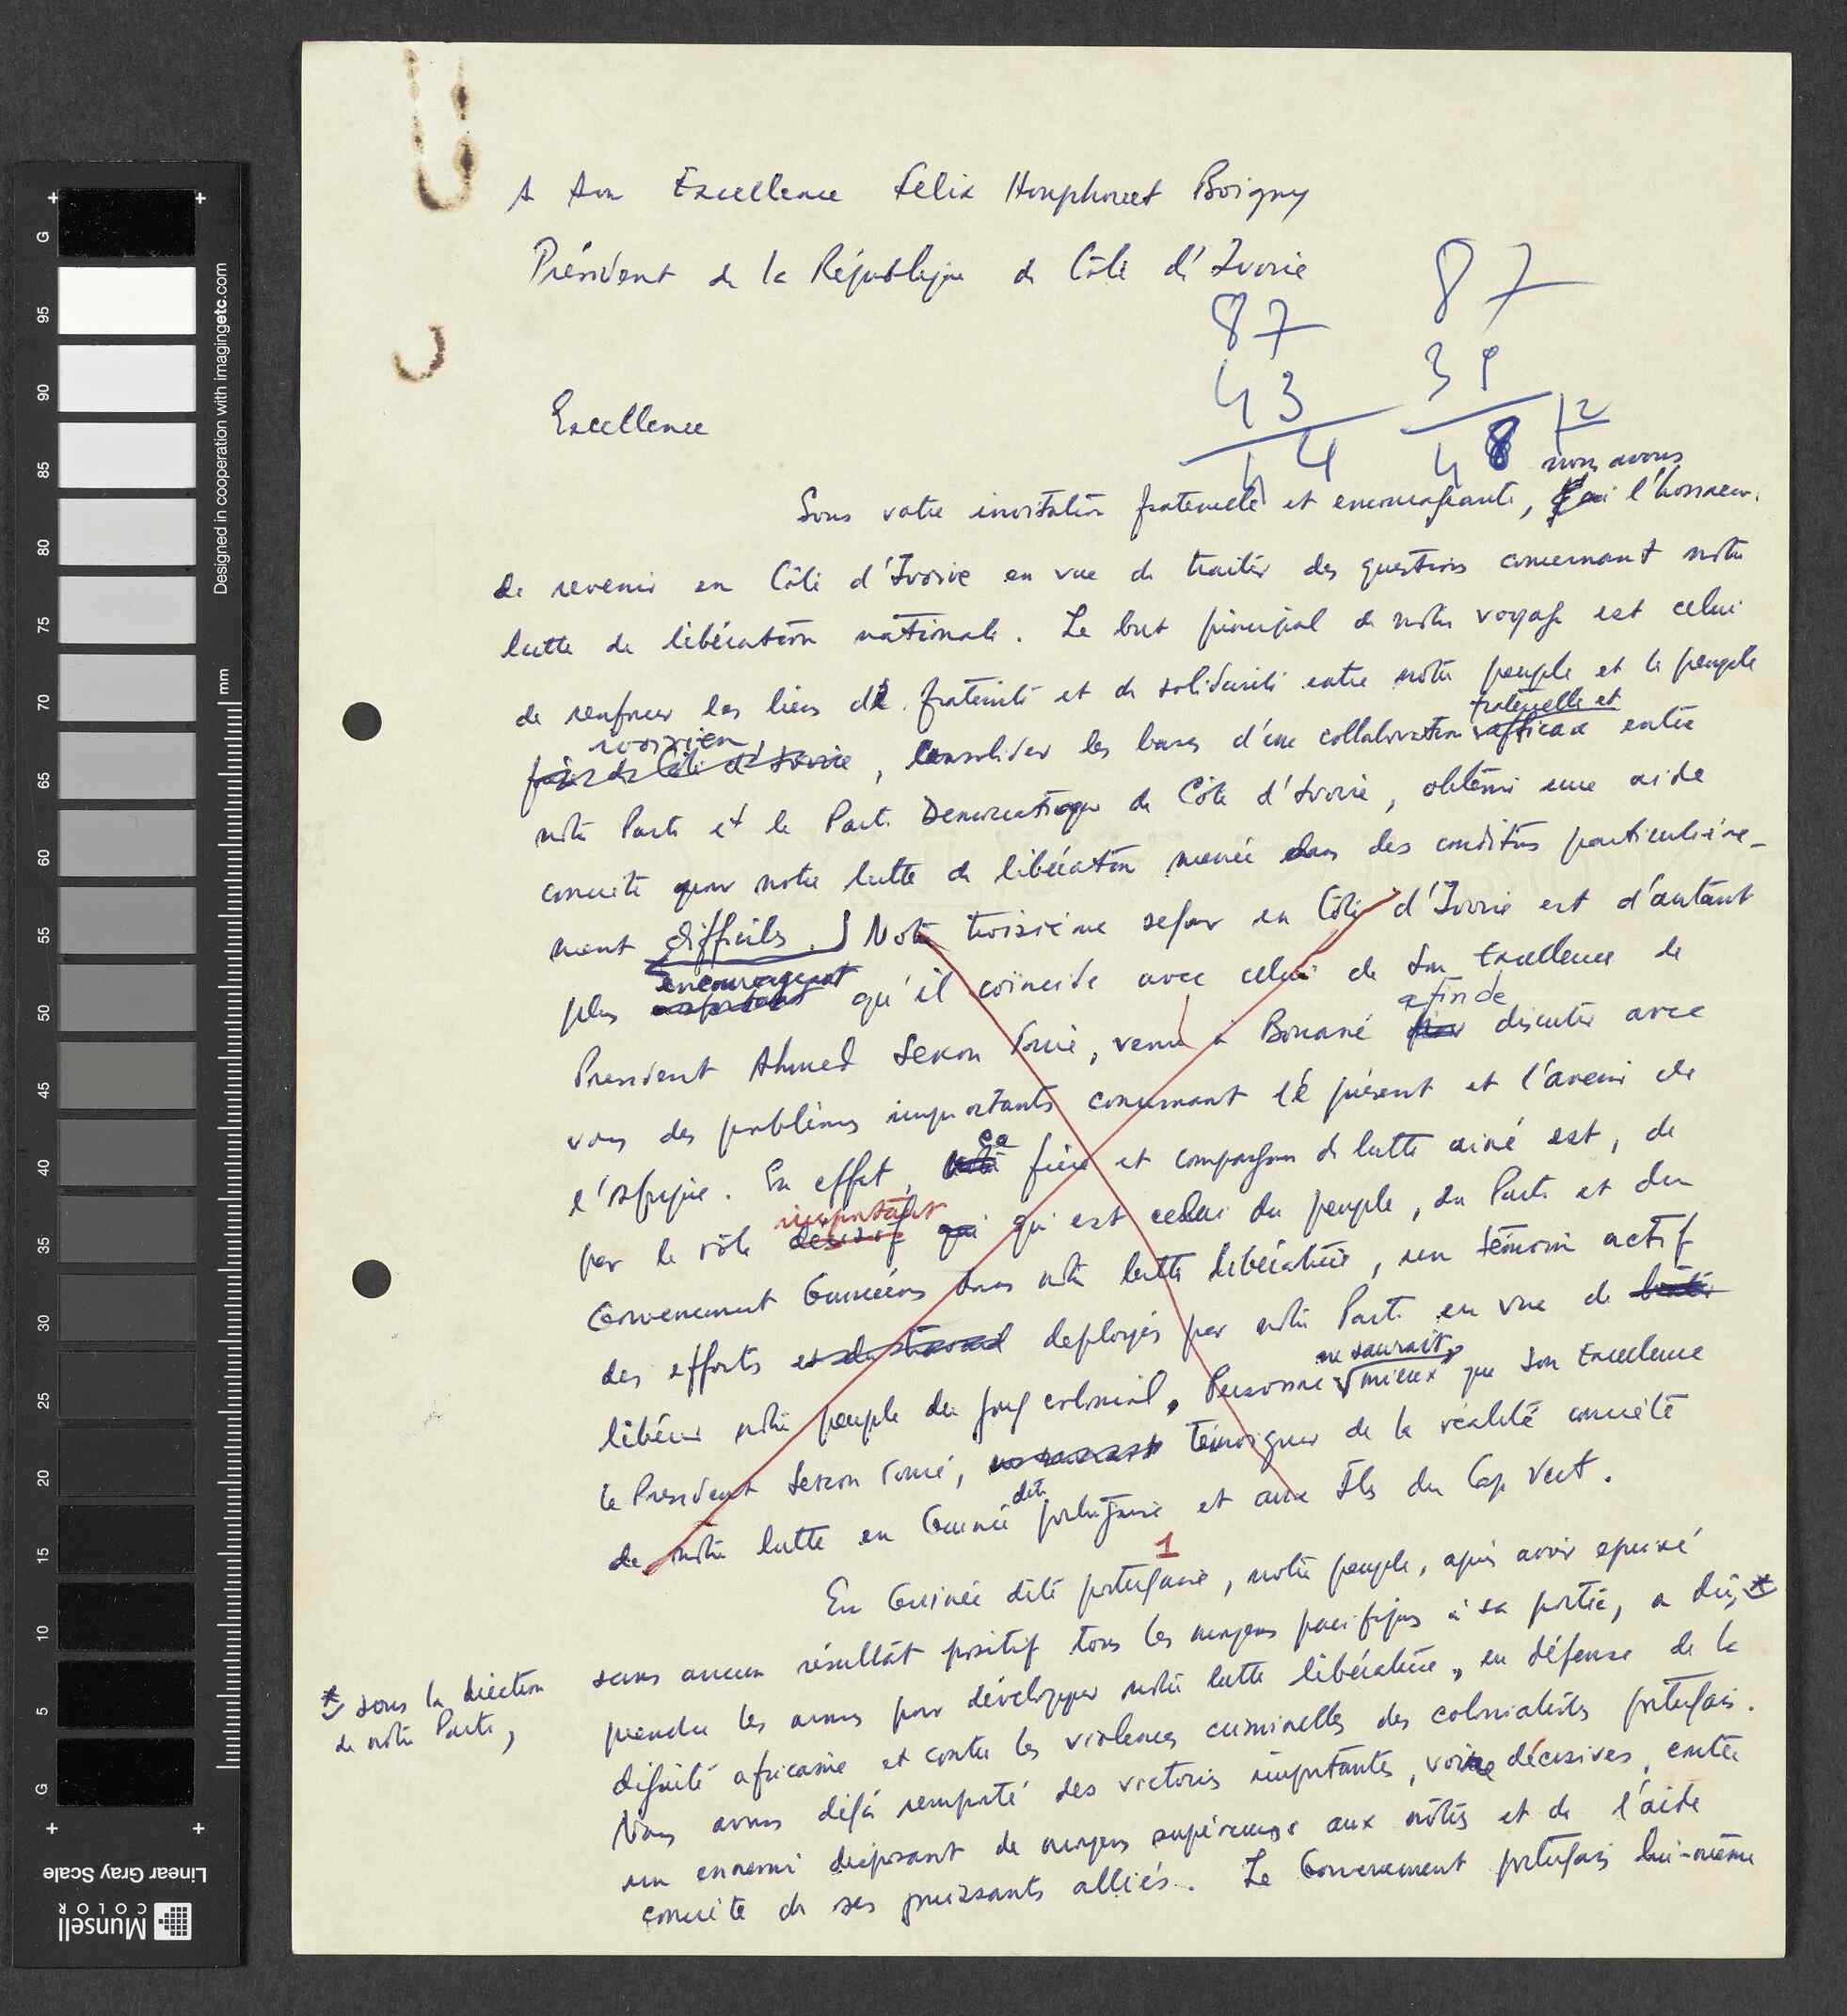 A Son Excellence Felix Houphouet Boigny
Président de la République de Côte d'Ivoire
87
43
44
87
39
48 12
Excellence
nous avons
Sous votre invitation fraternelle et encourageante, j'ai l'honneur
de revenir en Côte d'Ivoire en vue de traiter des questions concernant notre
lutte de libération nationale. Le but principal de notre voyage est celui
de renforcer les liens de fraternité et de solidarité entre notre peuple et le peuple
ivoirien fraternelle et
frère de Côte d'Ivoire, consolider les bases d'une collaboration efficace entre
notre Parti et le Parti Democratique de Côte d'Ivoire, obtenir une aide
concrète pour notre lutte de libération menée dans des conditions particulière-
ment difficiles. Notre troisième sejour en Côte d'Ivoire est d'autant
encourageant
plus important qu'il coïncide avec celui de Son Excellence le
afin de
President Ahmed Sekou Touré, venu à Bouaké pour discuter avec
vous des problèmes importants concernant le présent et l'avenir de
ce
l'Afrique. En effet, frère et compagnon de lutte ainé est, de
important
par le rôle decisif qui qui est celui du peuple, du Parti et du
Gouvernement Guinéens dans notre lutte libératrice, un témoin actif
des efforts et du travail deployés par notre Parti en vue de
ne saurait,
libérer notre peuple du joug colonial. Personne mieux que Son Excellence
le President Sekou Touré, ne saurait témoigner de la réalité concrète
dite
de notre lutte en Guinée portugaise et aux Iles du Cap Vert.
1
En Guinée dite portugaise, notre peuple, après avoir epuisé
sans aucun résultat positif tous les moyens pacifiques à sa portée, a dû, *
* sous la direction
de notre Parti,
prendre les armes pour développer notre lutte libératrice, en défense de la
dignité africaine et contre les violences criminelles des colonialistes portugais.
Nous avons déjà remporté des victoires importantes, voire décisives, contre
un ennemi disposant de moyens supérieurs aux nôtres et de l'aide
concrète de ses puissants alliés. Le Gouvernement portugais lui-même
G
95
90
85
80
75
70
65
60
55
50
45
40
35
30
25
20
15
10
5
G
Designed in cooperation with imagingetc.com
mm
Linear Gray Scale
Munsell
COLOR